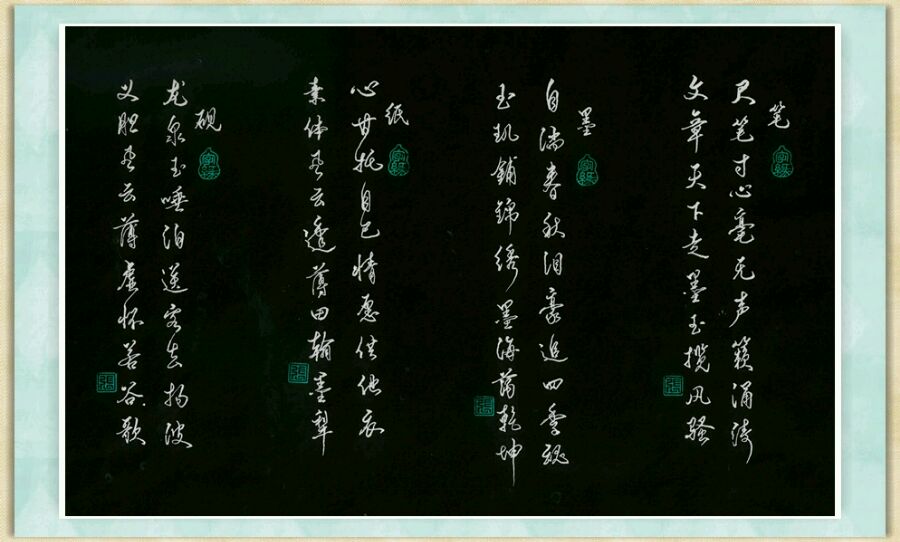 笔
尺笔寸心毫无声籁涌涛
文章天下走墨玉揽风骚
墨
自濡春秋泪豪追四季魂
玉玑铺锦绣墨海荡乾坤
纸
心甘托自己情愿供他衣
素体云透薄田翰墨犁
砚
龙泉玉唾泊客去扬波
义胆云薄虚怀若谷歌
張
張
張
張